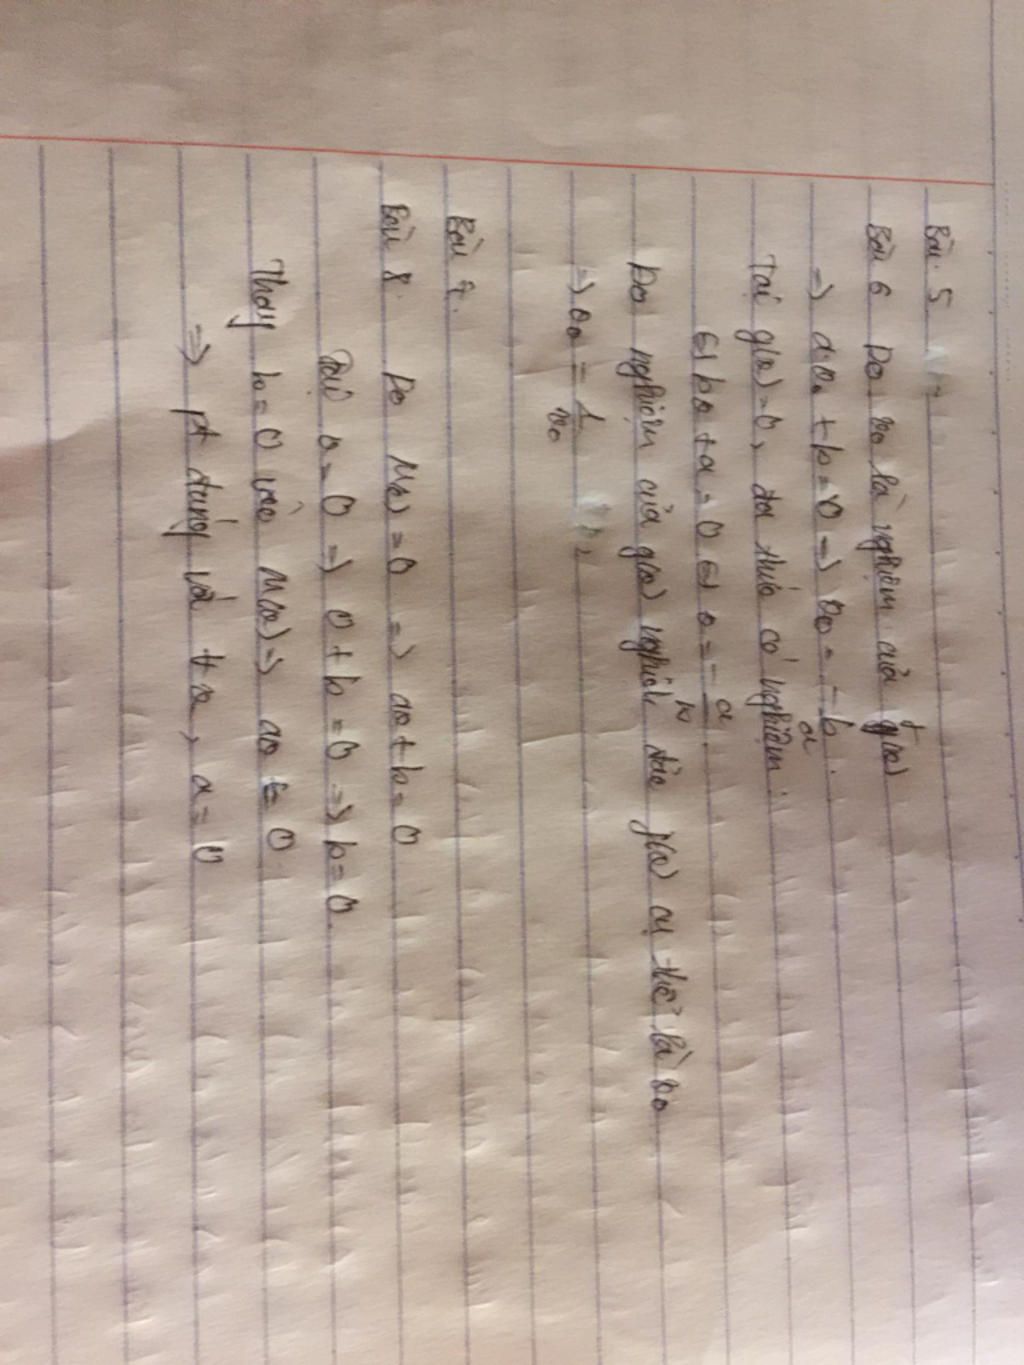 Bài 5
Bài 6 Do x₀ là nghiệm của f(x)
=> ax₀ + b = 0 => x₀ = -b/a.
Tại g(x) = 0, đa thức có nghiệm:
<=> bx + a = 0 <=> x = -a/b.
Do nghiệm của g(x) nghịch đảo f(x) cụ thể là x₀
=> x₀ = 1/x₀
Bài 7.
Bài 8. Do M(x) = 0 => ax + b = 0
Tại x = 0 => 0 + b = 0 => b = 0.
Thay b = 0 vào M(x) => ax = 0
=> pt đúng với ∀x, a = 0